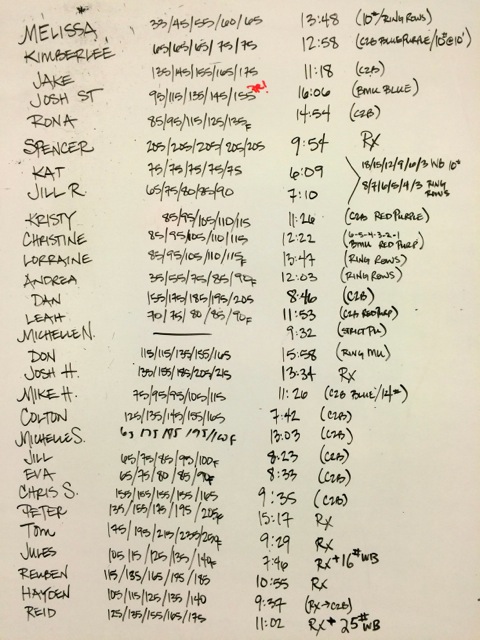 MELISSA 35/45/55/60/65 13:48 (10#/RING ROWS)
KIMBERLEE 65/65/65/75/75 12:58 (C2B BLUE PURPLE/10#@10')
JAKE 135/145/155/165/175 11:18 (C2B)
JOSH ST 95/115/135/145/155 16:06 (BMU BLUE)
RONA 85/95/115/125/135F 14:54 (C2B)
SPENCER 205/205/205/205/205 9:54 Rx
KAT 75/75/75/75/75 6:09 18/15/12/9/6/3 WB 10#
JILL R. 65/75/80/85/90 7:10 8/7/6/5/4/3 RING ROWS
KRISTY 85/95/105/110/115 11:26 (C2B RED PURPLE)
CHRISTINE 85/95/105/110/115 12:22 (6-5-4-3-2-1 BMU RED PURP)
LORRAINE 85/95/105/110/115F 13:47 (RING ROWS)
ANDREA 35/55/75/85/90F 12:03 (RING ROWS)
DAN 155/175/185/195/205 8:46 (C2B)
LEAH 70/75/80/85/90F 11:53 (C2B RED PURP)
MICHELLE N. 9:32 (STRICT PU)
DON 115/115/135/155/165 15:58 (RING MU)
JOSH H. 135/155/185/205/215 13:34 Rx
MIKE H. 75/95/95/105/115 11:26 (C2B BLUE/14#)
COLTON 125/135/145/155/165 7:42 (C2B)
MICHELLE S. 13:03 (C2B)
JILL 65/75/85/95/100F 8:23 (C2B)
EVA 65/75/80/85/90F 8:33 (C2B)
CHRIS S. 155/155/155/155/165 9:35 (C2B)
PETER 135/155/175/195/205F 15:17 Rx
TOM 175/195/215/235/255F 9:29 Rx
JULES 105/115/125/135/140F 7:46 Rx+16# WB
REUBEN 115/135/165/175/185 10:55 Rx
HAYDEN 105/115/125/135/140 9:37 (Rx→C2B)
REID 125/135/155/165/175 11:02 Rx+25# WB